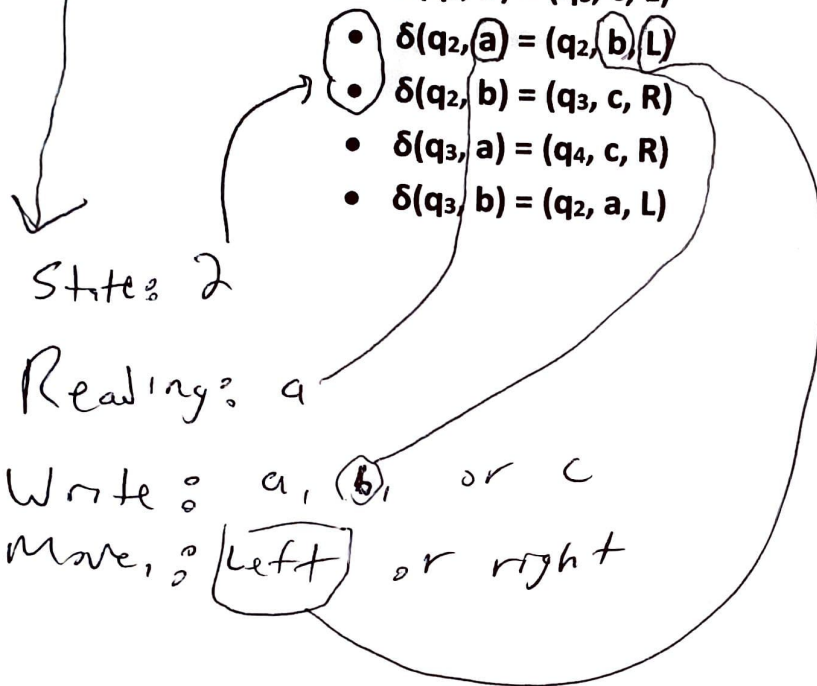 • δ(q₂, a) = (q₂, b, L)
• δ(q₂, b) = (q₃, c, R)
• δ(q₃, a) = (q₄, c, R)
• δ(q₃, b) = (q₂, a, L)
State: 2
Reading: a
Write: a, b, or c
Move,: Left or right